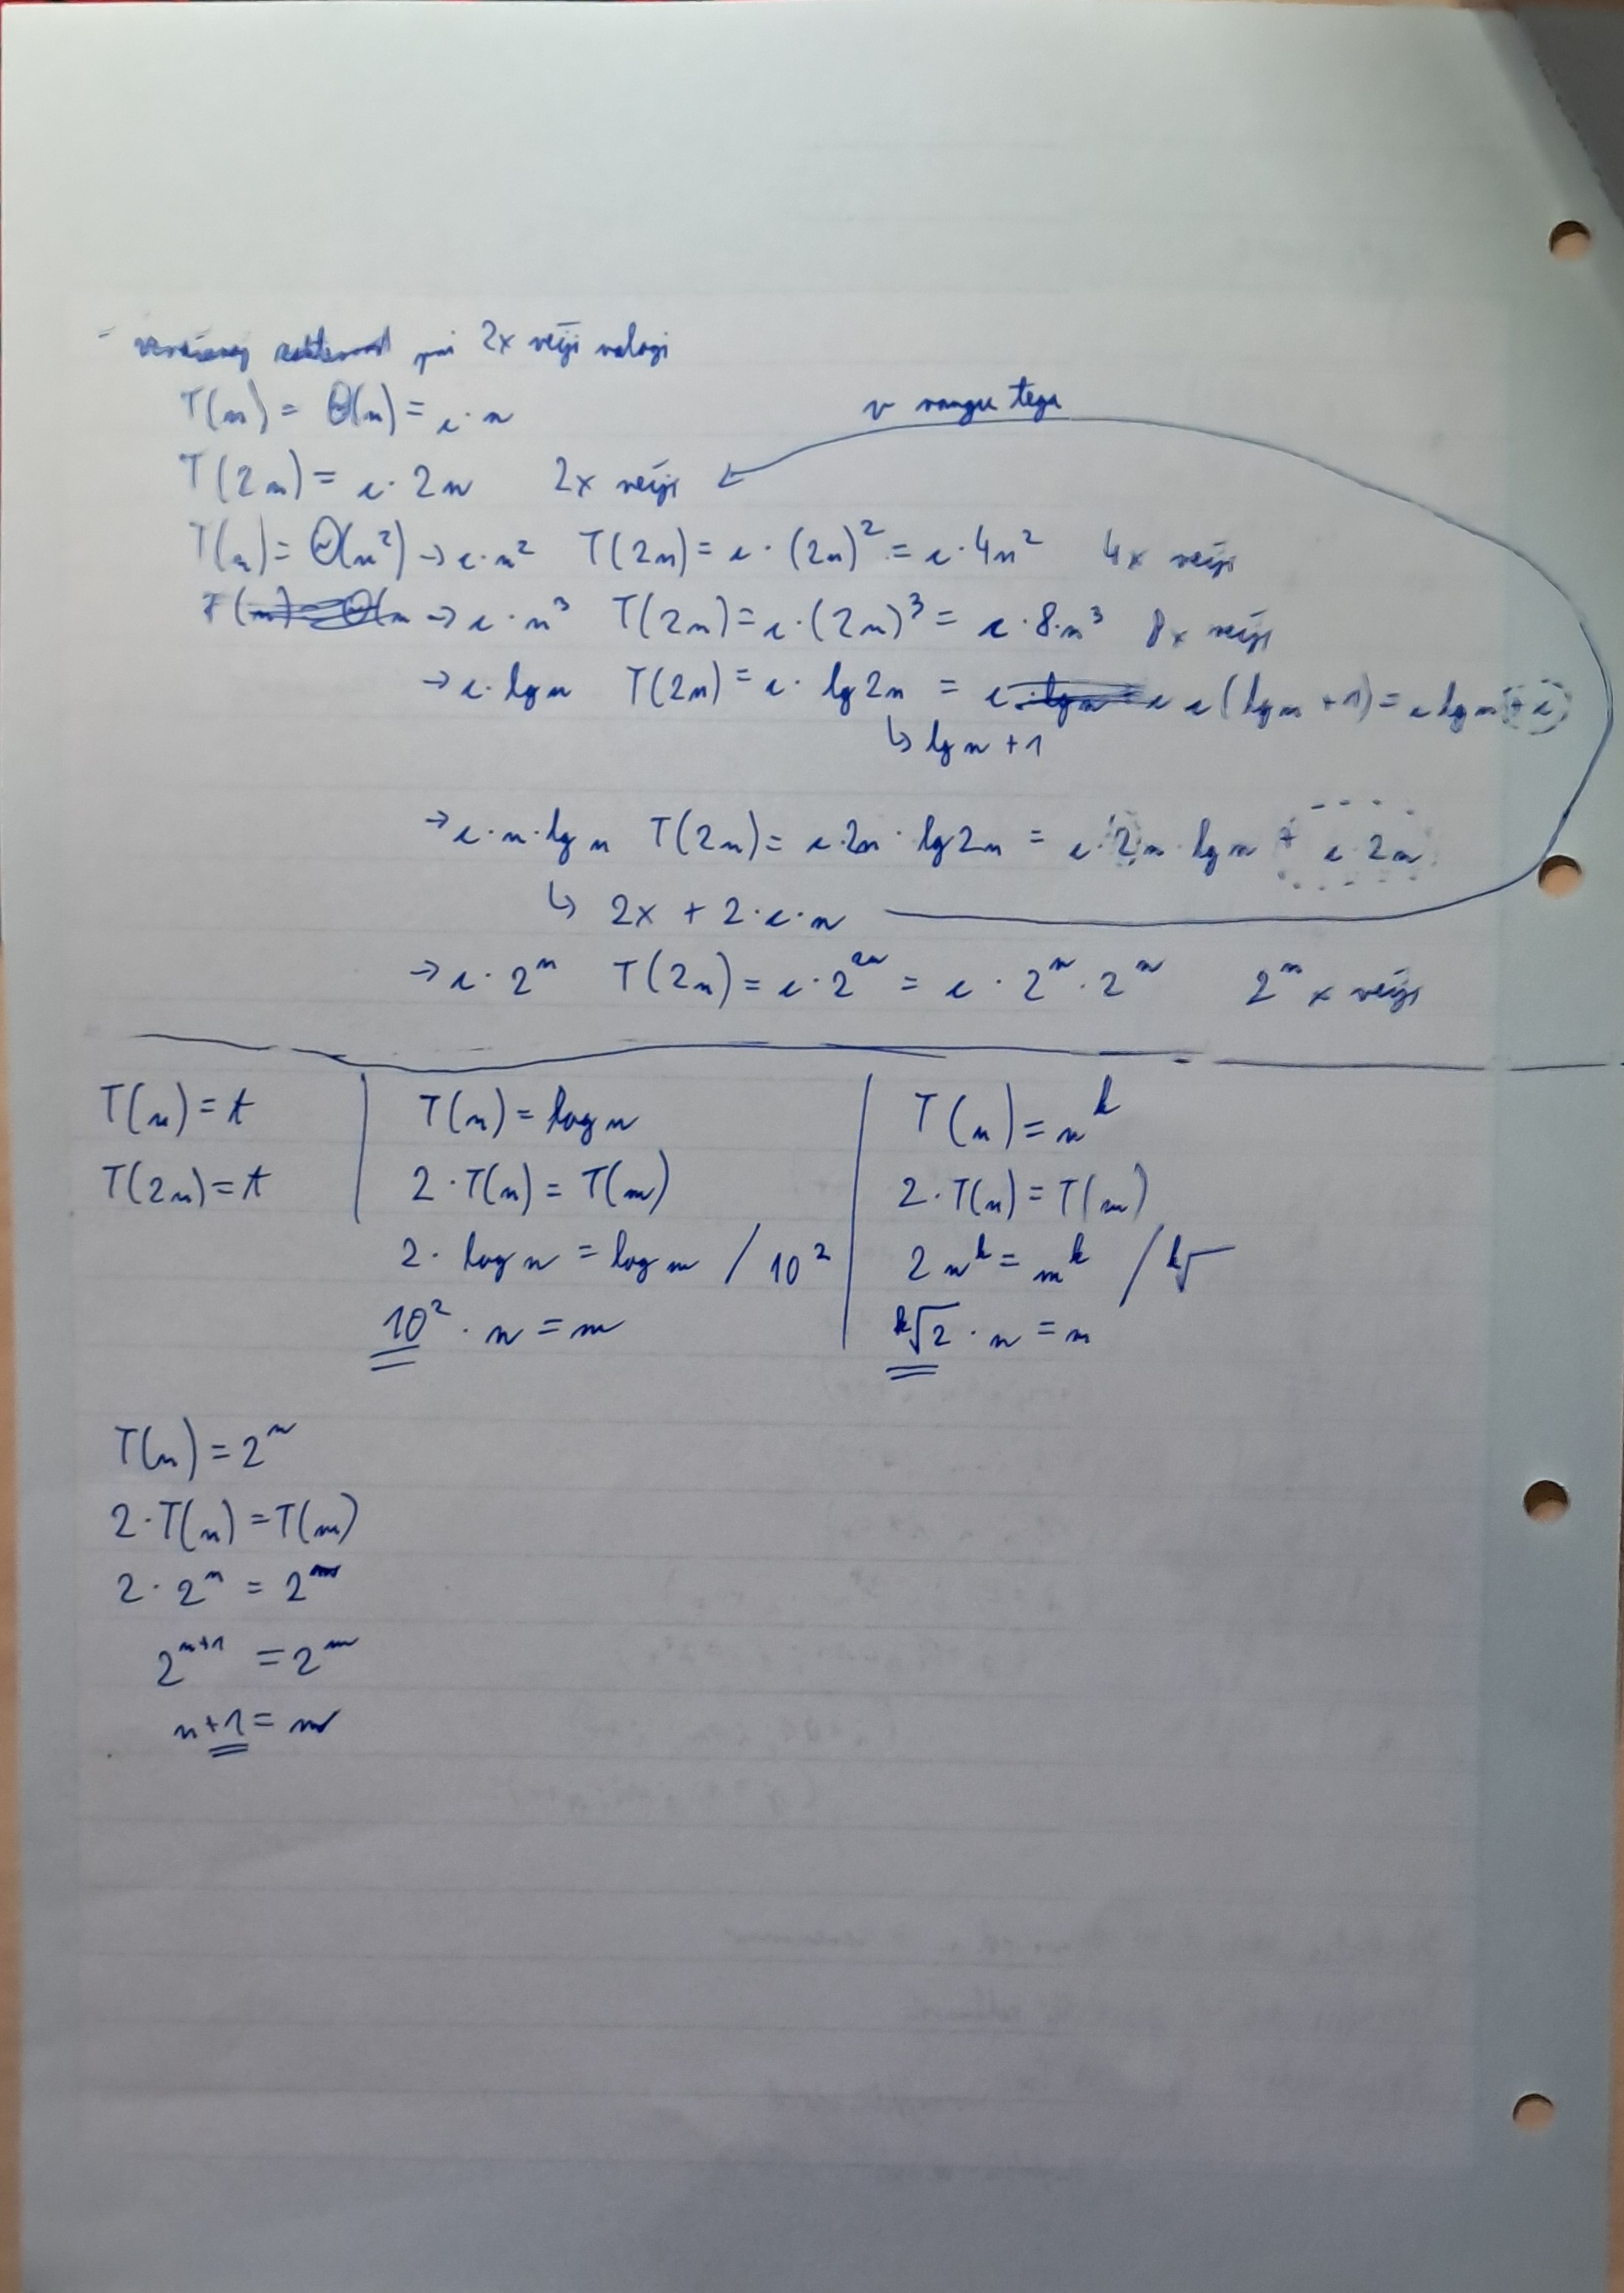 pri 2x večji nalogi
T(n) = Θ(n) = c · n
v rangu tega
T(2n) = c · 2n 2x večji
T(n) = Θ(n²) → c · n² T(2n) = c · (2n)² = c · 4n² 4x večji
→ c · n³ T(2n) = c · (2n)³ = c · 8 · n³ 8x večji
→ c · lg n T(2n) = c · lg 2n = c (lg n + 1) = c lg n + c
↳ lg n + 1
→ c · n · lg n T(2n) = c · 2n · lg 2n = c · 2n · lg n + c · 2n
↳ 2x + 2 · c · n
→ c · 2ⁿ T(2n) = c · 2²ⁿ = c · 2ⁿ · 2ⁿ 2ⁿ x večji
T(n) = t
T(2n) = t
T(n) = log n
2 · T(n) = T(m)
2 · log n = log m / 10²
10² · n = m
T(n) = n^k
2 · T(n) = T(m)
2 n^k = m^k / k√
k√2 · n = m
T(n) = 2ⁿ
2 · T(n) = T(m)
2 · 2ⁿ = 2ᵐ
2ⁿ⁺¹ = 2ᵐ
n + 1 = m